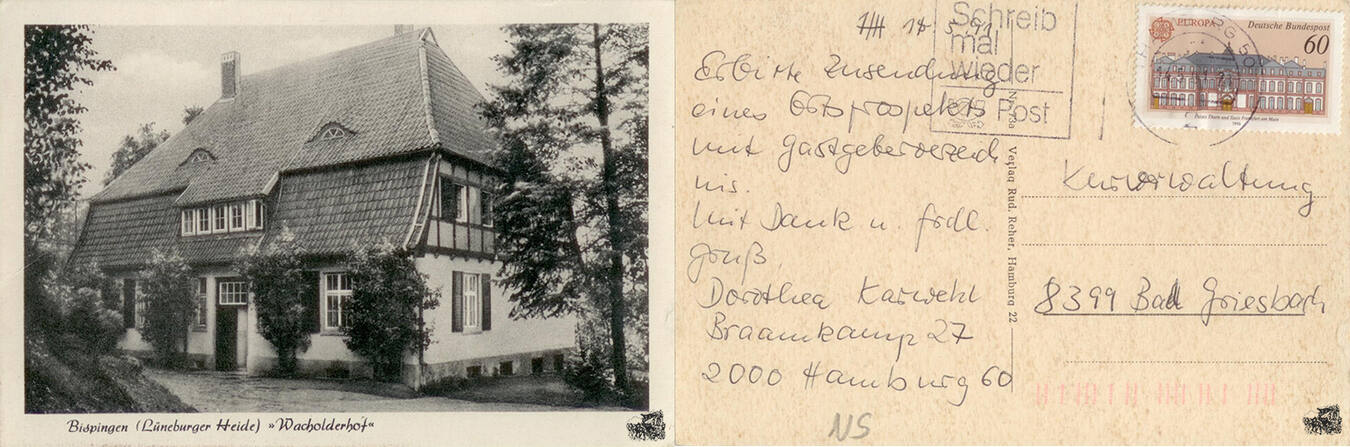 Bispingen (Lüneburger Heide) »Wacholderhof«
HH 18 5 91
Erbitte Zusendung
eines Ortsprospekts
mit Gastgeberverzeich
nis.
Mit Dank u. frdl.
Gruß
Dorothea Karwehl
Braamkamp 27
2000 Hamburg 60
NS
Schreib
mal
wieder
Post
Verlag Rud. Reher, Hamburg 22
EUROPA
Deutsche Bundespost
60
Palais Thurn und Taxis Frankfurt am Main
Kurverwaltung
8399 Bad Griesbach